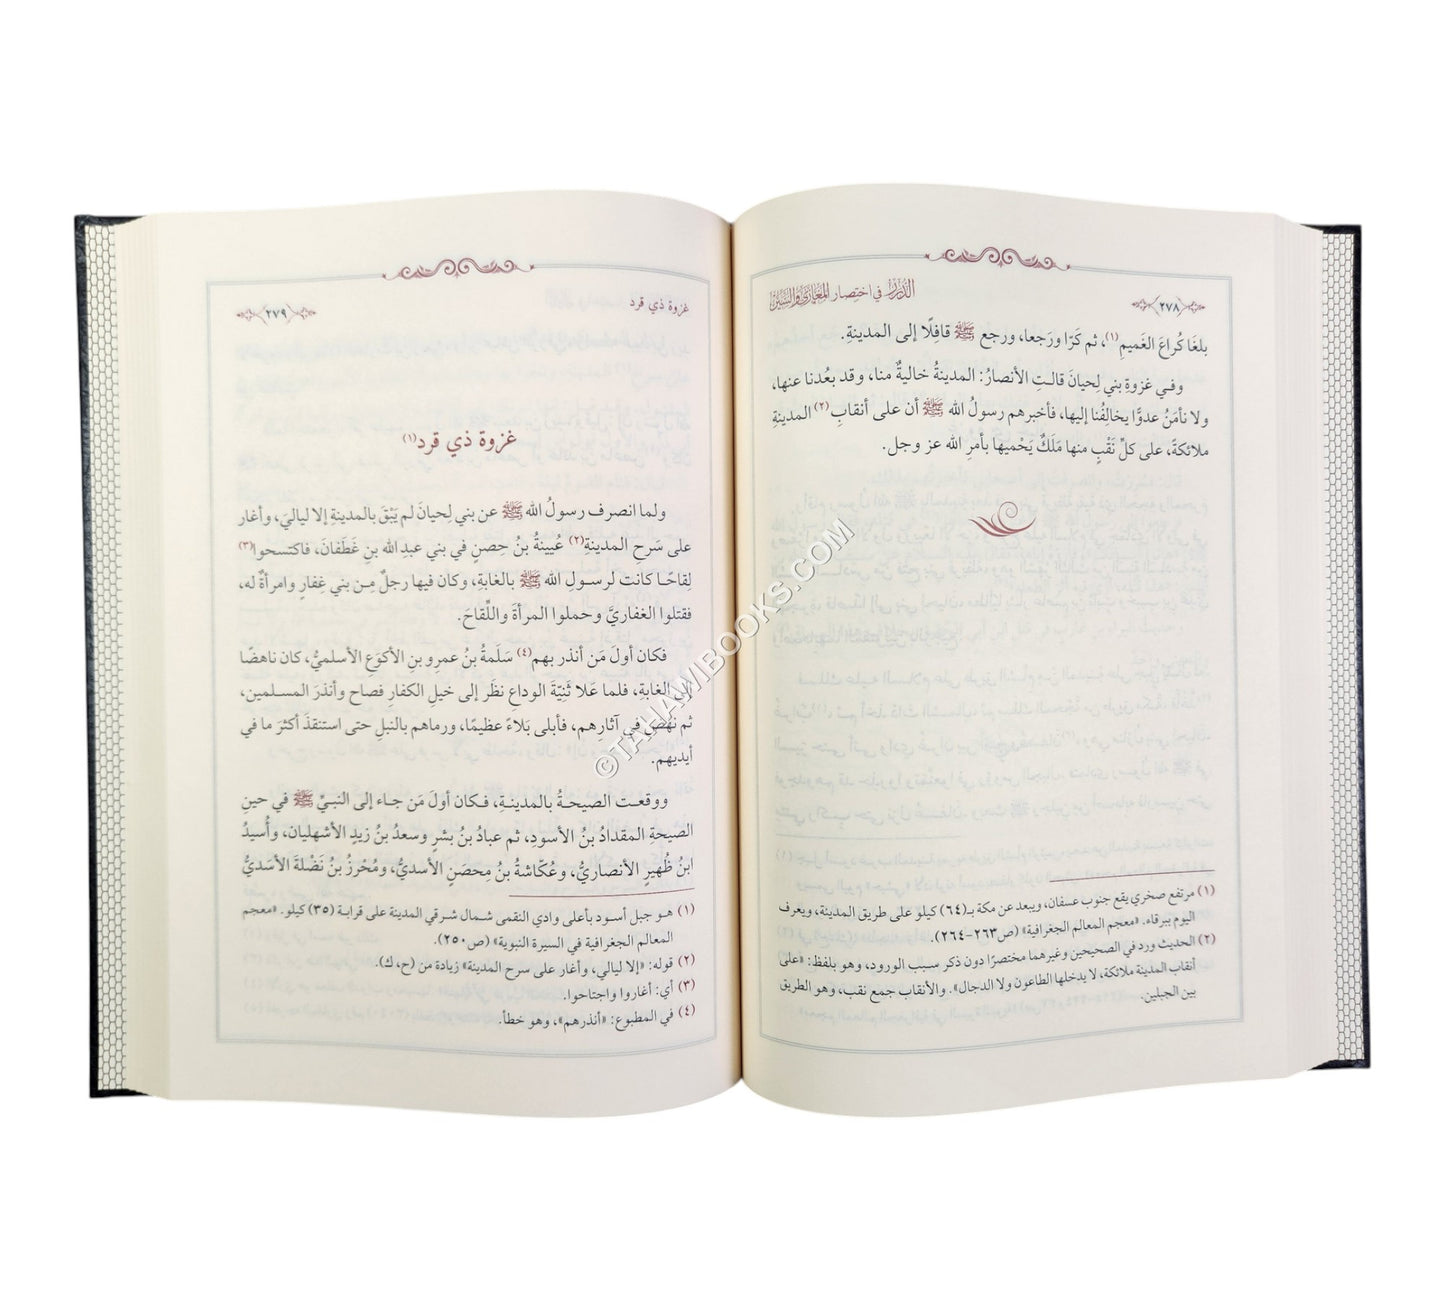 ٢٧٨
الدرر في اختصار المغازي والسير
بلغَا كُراعَ الغَميمِ(١)، ثم كَرّا ورَجعا، ورجع ﷺ قافِلًا إلى المدينةِ.
وفي غزوةِ بني لِحيانَ قالتِ الأنصارُ: المدينةُ خاليةٌ منا، وقد بعُدنا عنها،
ولا نأمَنُ عدوًّا يخالِفُنا إليها، فأخبرهم رسولُ الله ﷺ أن على أنقابِ(٢) المدينةِ
ملائكةً، على كلِّ نَقْبٍ منها مَلَكٌ يَحْميها بأمرِ الله عز وجل.
(١) مرتفع صخري يقع جنوب عسفان، ويبعد عن مكة بـ(٦٤) كيلو على طريق المدينة، ويعرف
اليوم ببرقاء. «معجم المعالم الجغرافية» (ص٢٦٣-٢٦٤).
(٢) الحديث ورد في الصحيحين وغيرهما مختصرًا دون ذكر سبب الورود، وهو بلفظ: «على
أنقاب المدينة ملائكة، لا يدخلها الطاعون ولا الدجال». والأنقاب جمع نقب، وهو الطريق
بين الجبلين.
غزوة ذي قرد
٢٧٩
غزوة ذي قرد(١)
ولما انصرف رسولُ الله ﷺ عن بني لِحيانَ لم يَبْقَ بالمدينةِ إلا لياليَ، وأغار
على سَرحِ المدينةِ(٢) عُيينةُ بنُ حِصنٍ في بني عبدِ الله بنِ غَطَفانَ، فاكتسحوا(٣)
لِقاحًا كانت لرسولِ الله ﷺ بالغابةِ، وكان فيها رجلٌ مِن بني غِفارٍ وامرأةٌ له،
فقتلوا الغفاريَّ وحملوا المرأةَ واللِّقاحَ.
فكان أولَ مَن أنذر بهم(٤) سَلَمةُ بنُ عمرِو بنِ الأكوَعِ الأسلميُّ، كان ناهضًا
إلى الغابة، فلما عَلا ثَنِيّةَ الوداعِ نظَر إلى خيلِ الكفارِ فصاح وأنذرَ المسلمين،
ثم نهَضَ في آثارِهم، فأبلى بَلاءً عظيمًا، ورماهم بالنبلِ حتى استنقذَ أكثرَ ما في
أيديهم.
ووقعت الصيحةُ بالمدينةِ، فكان أولَ مَن جاء إلى النبيِّ ﷺ في حينِ
الصيحةِ المقدادُ بنُ الأسودِ، ثم عبادُ بنُ بشرٍ وسعدُ بنُ زيدٍ الأشهليان، وأُسيدُ
ابنُ ظُهيرٍ الأنصاريُّ، وعُكّاشةُ بنُ مِحصَنٍ الأسديُّ، ومُحْرزُ بنُ نَضْلةَ الأسَديُّ
(١) هو جبل أسود بأعلى وادي النقمى شمال شرقي المدينة على قرابة (٣٥) كيلو. «معجم
المعالم الجغرافية في السيرة النبوية» (ص٢٥٠).
(٢) قوله: «إلا ليالي، وأغار على سرح المدينة» زيادة من (ح، ك).
(٣) أي: أغاروا واجتاحوا.
(٤) في المطبوع: «أنذرهم»، وهو خطأ.
©TAHAWIBOOKS.COM